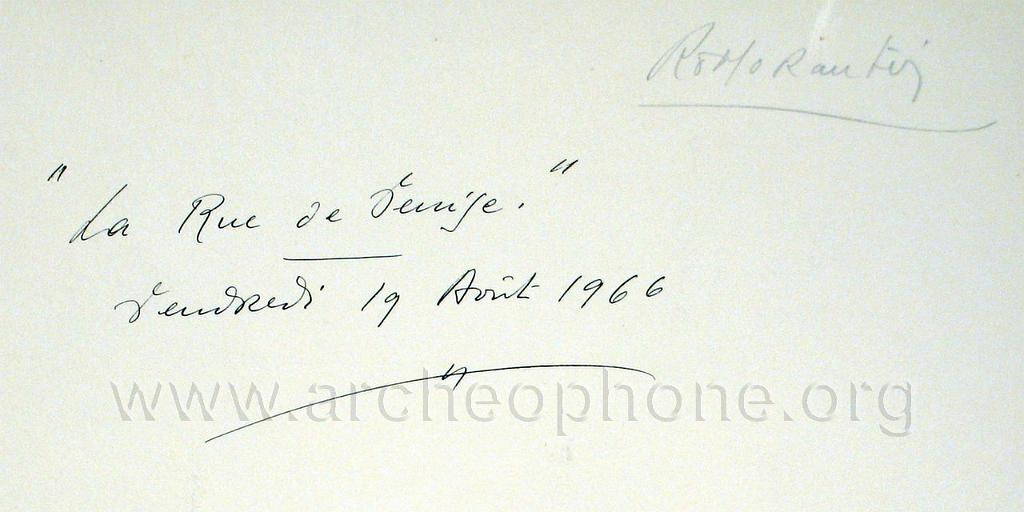 Romorantin
" La Rue de Venise. "
Vendredi 19 Août 1966
www.archeophone.org